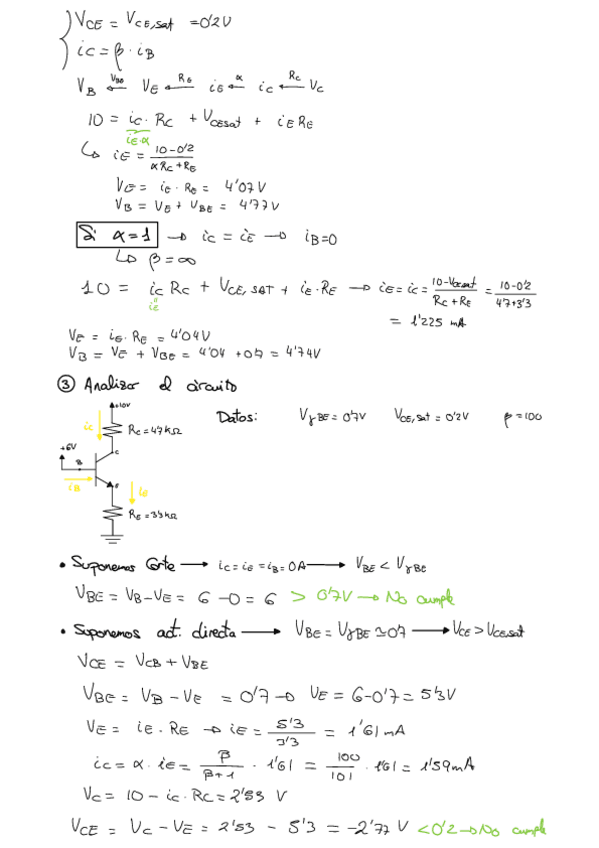 V_CE = V_CE,sat = 0'2V
i_C = β · i_B
V_B ←(V_BE) V_E ←(R_E) i_E ←(α) i_C ←(R_C) V_C
10 = i_C · R_C + V_CEsat + i_E R_E
i_E·α
↳ i_E = (10 - 0'2) / (αR_C + R_E)
V_E = i_E · R_E = 4'07V
V_B = V_E + V_BE = 4'77V
Si α = 1 → i_C = i_E → i_B = 0
↳ β = ∞
10 = i_C R_C + V_CE,SAT + i_E · R_E → i_E = i_C = (10 - V_CEsat) / (R_C + R_E) = (10 - 0'2) / (4'7 + 3'3)
i_E
= 1'225 mA
V_E = i_E · R_E = 4'04V
V_B = V_E + V_BE = 4'04 + 0'7 = 4'74V
③ Analizar el circuito
+10V
i_C R_C = 4'7kΩ
Datos: V_γBE = 0'7V V_CE,sat = 0'2V β = 100
C
+6V
B
i_B
E
i_E
R_E = 3'3kΩ
• Suponemos Corte → i_C = i_E = i_B = 0A → V_BE < V_γBE
V_BE = V_B - V_E = 6 - 0 = 6 > 0'7V → No cumple
• Suponemos act. directa → V_BE = V_γBE ≃ 0'7 → V_CE > V_CE,sat
V_CE = V_CB + V_BE
V_BE = V_B - V_E = 0'7 → V_E = 6 - 0'7 = 5'3V
V_E = i_E · R_E → i_E = 5'3 / 3'3 = 1'61 mA
i_C = α · i_E = β / (β+1) · 1'61 = 100 / 101 · 1'61 = 1'59mA
V_C = 10 - i_C · R_C = 2'53 V
V_CE = V_C - V_E = 2'53 - 5'3 = -2'77 V < 0'2 → No cumple